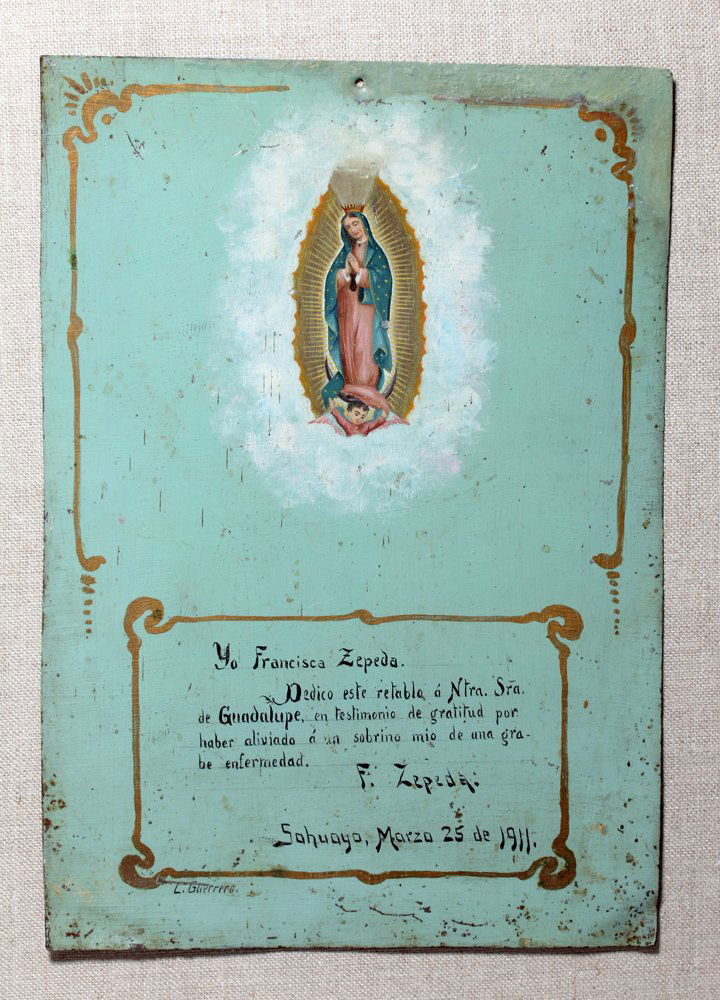 Yo Francisca Zepeda.
Dedico este retabla á Ntra. Sra.
de Guadalupe, en testimonio de gratitud por
haber aliviado á un sobrino mio de una gra-
be enfermedad.
F. Zepeda.
Sahuayo, Marzo 25 de 1911.
L. Guerrero.